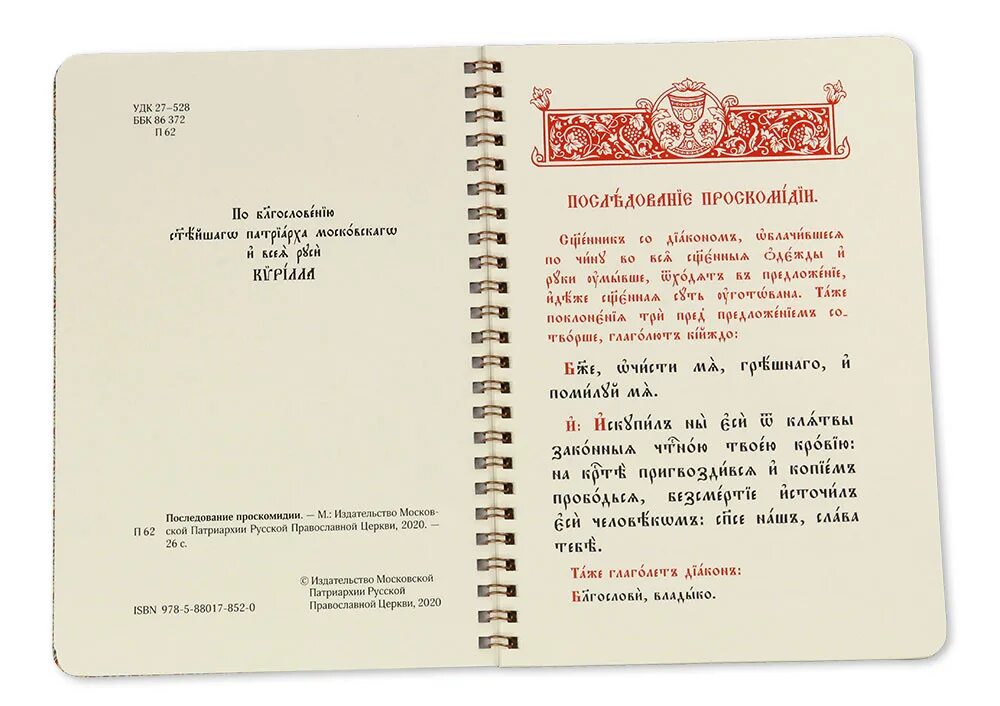 УДК 27–528
ББК 86 372
П 62
По бл҃гослове́нїю
ст҃ѣ́йшагѡ патрїа́рха моско́вскагѡ
и҆ всеѧ̀ рꙋсѝ
КѴРІ́ЛЛА
Последование проскомидии. — М.: Издательство Москов-
П 62 ской Патриархии Русской Православной Церкви, 2020. —
26 с.
© Издательство Московской
Патриархии Русской
Православной Церкви, 2020
ISBN 978-5-88017-852-0
ПОСЛѢ́ДОВАНЇЕ ПРОСКОМІ́ДЇИ.
Сщ҃е́нникъ со дїа́кономъ, ѡ҆блачи́вшесѧ
по чи́нꙋ во всѧ̑ сщ҃є́нныѧ ѻ҆дє́жды и҆
рꙋ́ки ᲂу҆мы́вше, ѿхо́дѧтъ въ предложе́нїе,
и҆дѣ́же сщ҃є́ннаѧ сꙋ́ть ᲂу҆гото́вана. Та́же
поклонє́нїѧ трѝ пред̾ предложе́нїемъ со-
тво́рше, глаго́лютъ кі́йждо:
Бж҃е, ѡ҆чи́сти мѧ̀, грѣ́шнаго, и҆
поми́лꙋй мѧ̀.
И҆: И҆скꙋпи́лъ ны̀ є҆сѝ ѿ клѧ́твы
зако́нныѧ чⷭ҇тно́ю твое́ю кро́вїю:
на крⷭ҇тѣ̀ пригвозди́всѧ и҆ копїе́мъ
пробо́дьсѧ, безсме́ртїе и҆сточи́лъ
є҆сѝ человѣ́кѡмъ: сп҃се на́шъ, сла́ва
тебѣ̀.
Та́же глаго́летъ дїа́конъ:
Бл҃гословѝ, влады́ко.